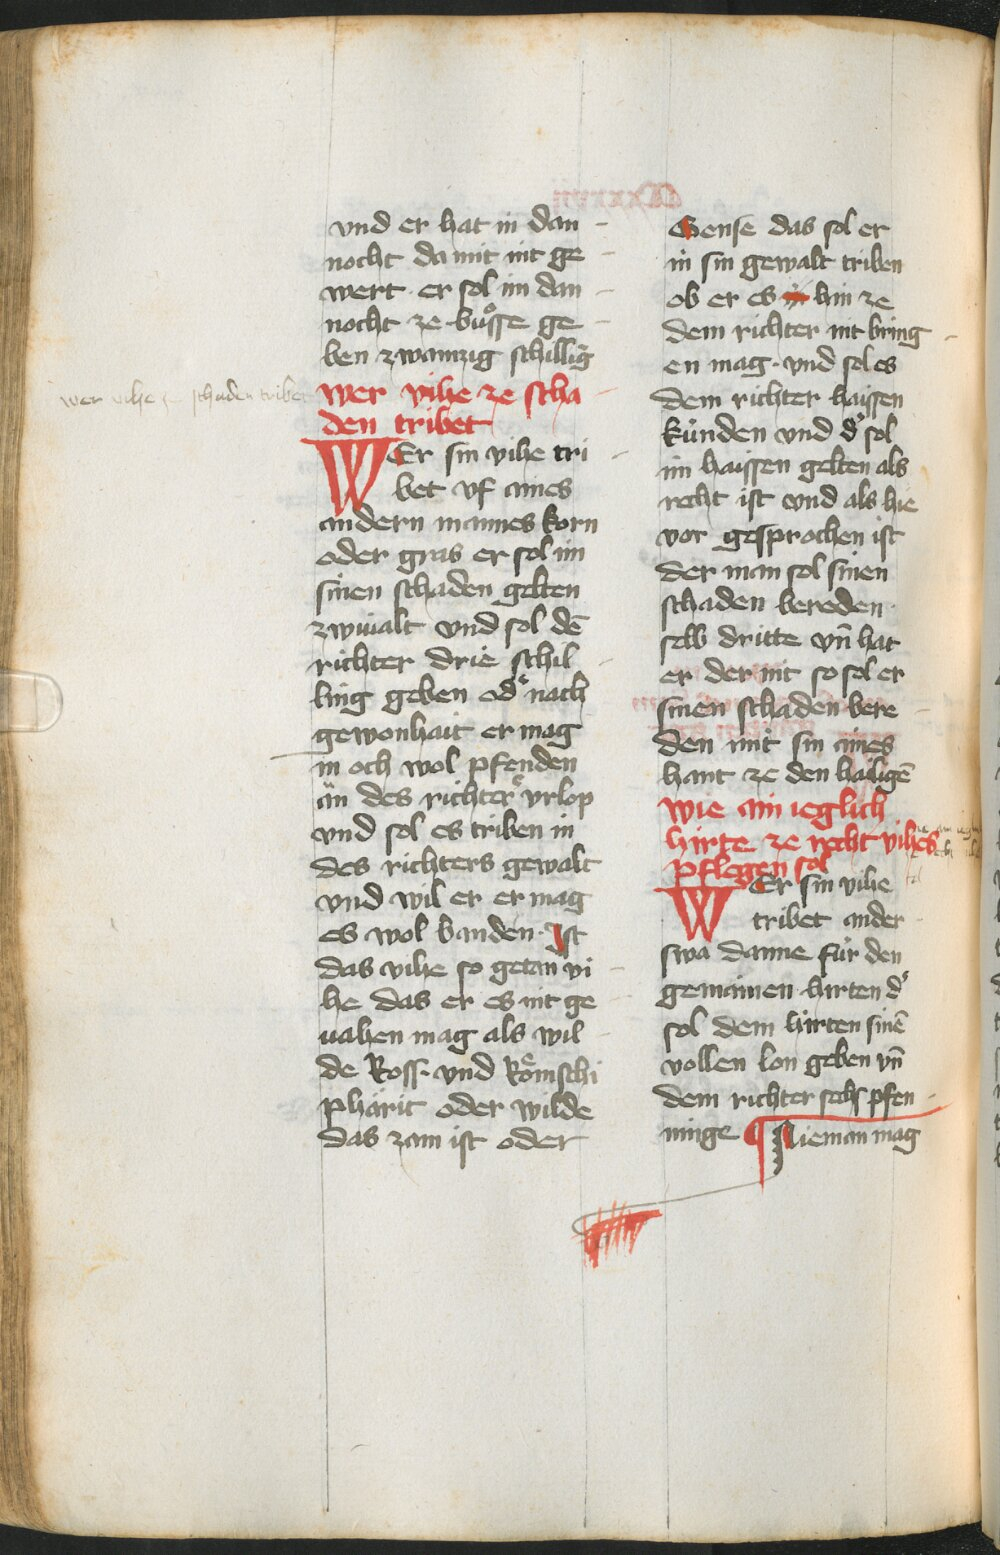 vnd er hat in dan
nocht da mit nit ge
wert er sol im dan
nocht ze bůsse ge
ben zwainzig schilliḡ
wer vihe ze scha
den tribet
wer vihe ze schaden tribet
WEr sin vihe tri
bet vf aines
andern mannes korn
oder gras er sol im
sinen schaden gelten
zwiualt vnd sol dē
richter drie schil
ling geben od' nach
gewonhait er mag
in och wol pfenden
än des richter vrlop
vnd sol es triben in
des richters gewalt
vnd wil er er mag
es wol banden. Ist
das vihe so getan vi
he das er es nit ge
uahen mag als wil
de Ross vnd Römschi
pharit oder wilde
das zam ist oder
Gense das sol er
in sin gewalt triben
ob er es hin ze
dem richter nit bring
en mag. vnd sol es
dem richter haissen
kúnden vnd d' sol
im haissen gelten als
recht ist vnd als hie
vor gesprochen ist
der man sol sinen
schaden bereden
selb dritte vn̄ hat
er der nit so sol er
sinen schaden bere
den mit sin aines
hant ze den hailigē
wie ain ieglich
hirte ze recht vihes
pflegen sol
WEr sin vihe
tribet ander
swa danne für den
gemainen hirten d'
sol dem hirten sinē
vollen lon geben vn̄
dem richter sechs pfen
ninge ¶ Nieman mag